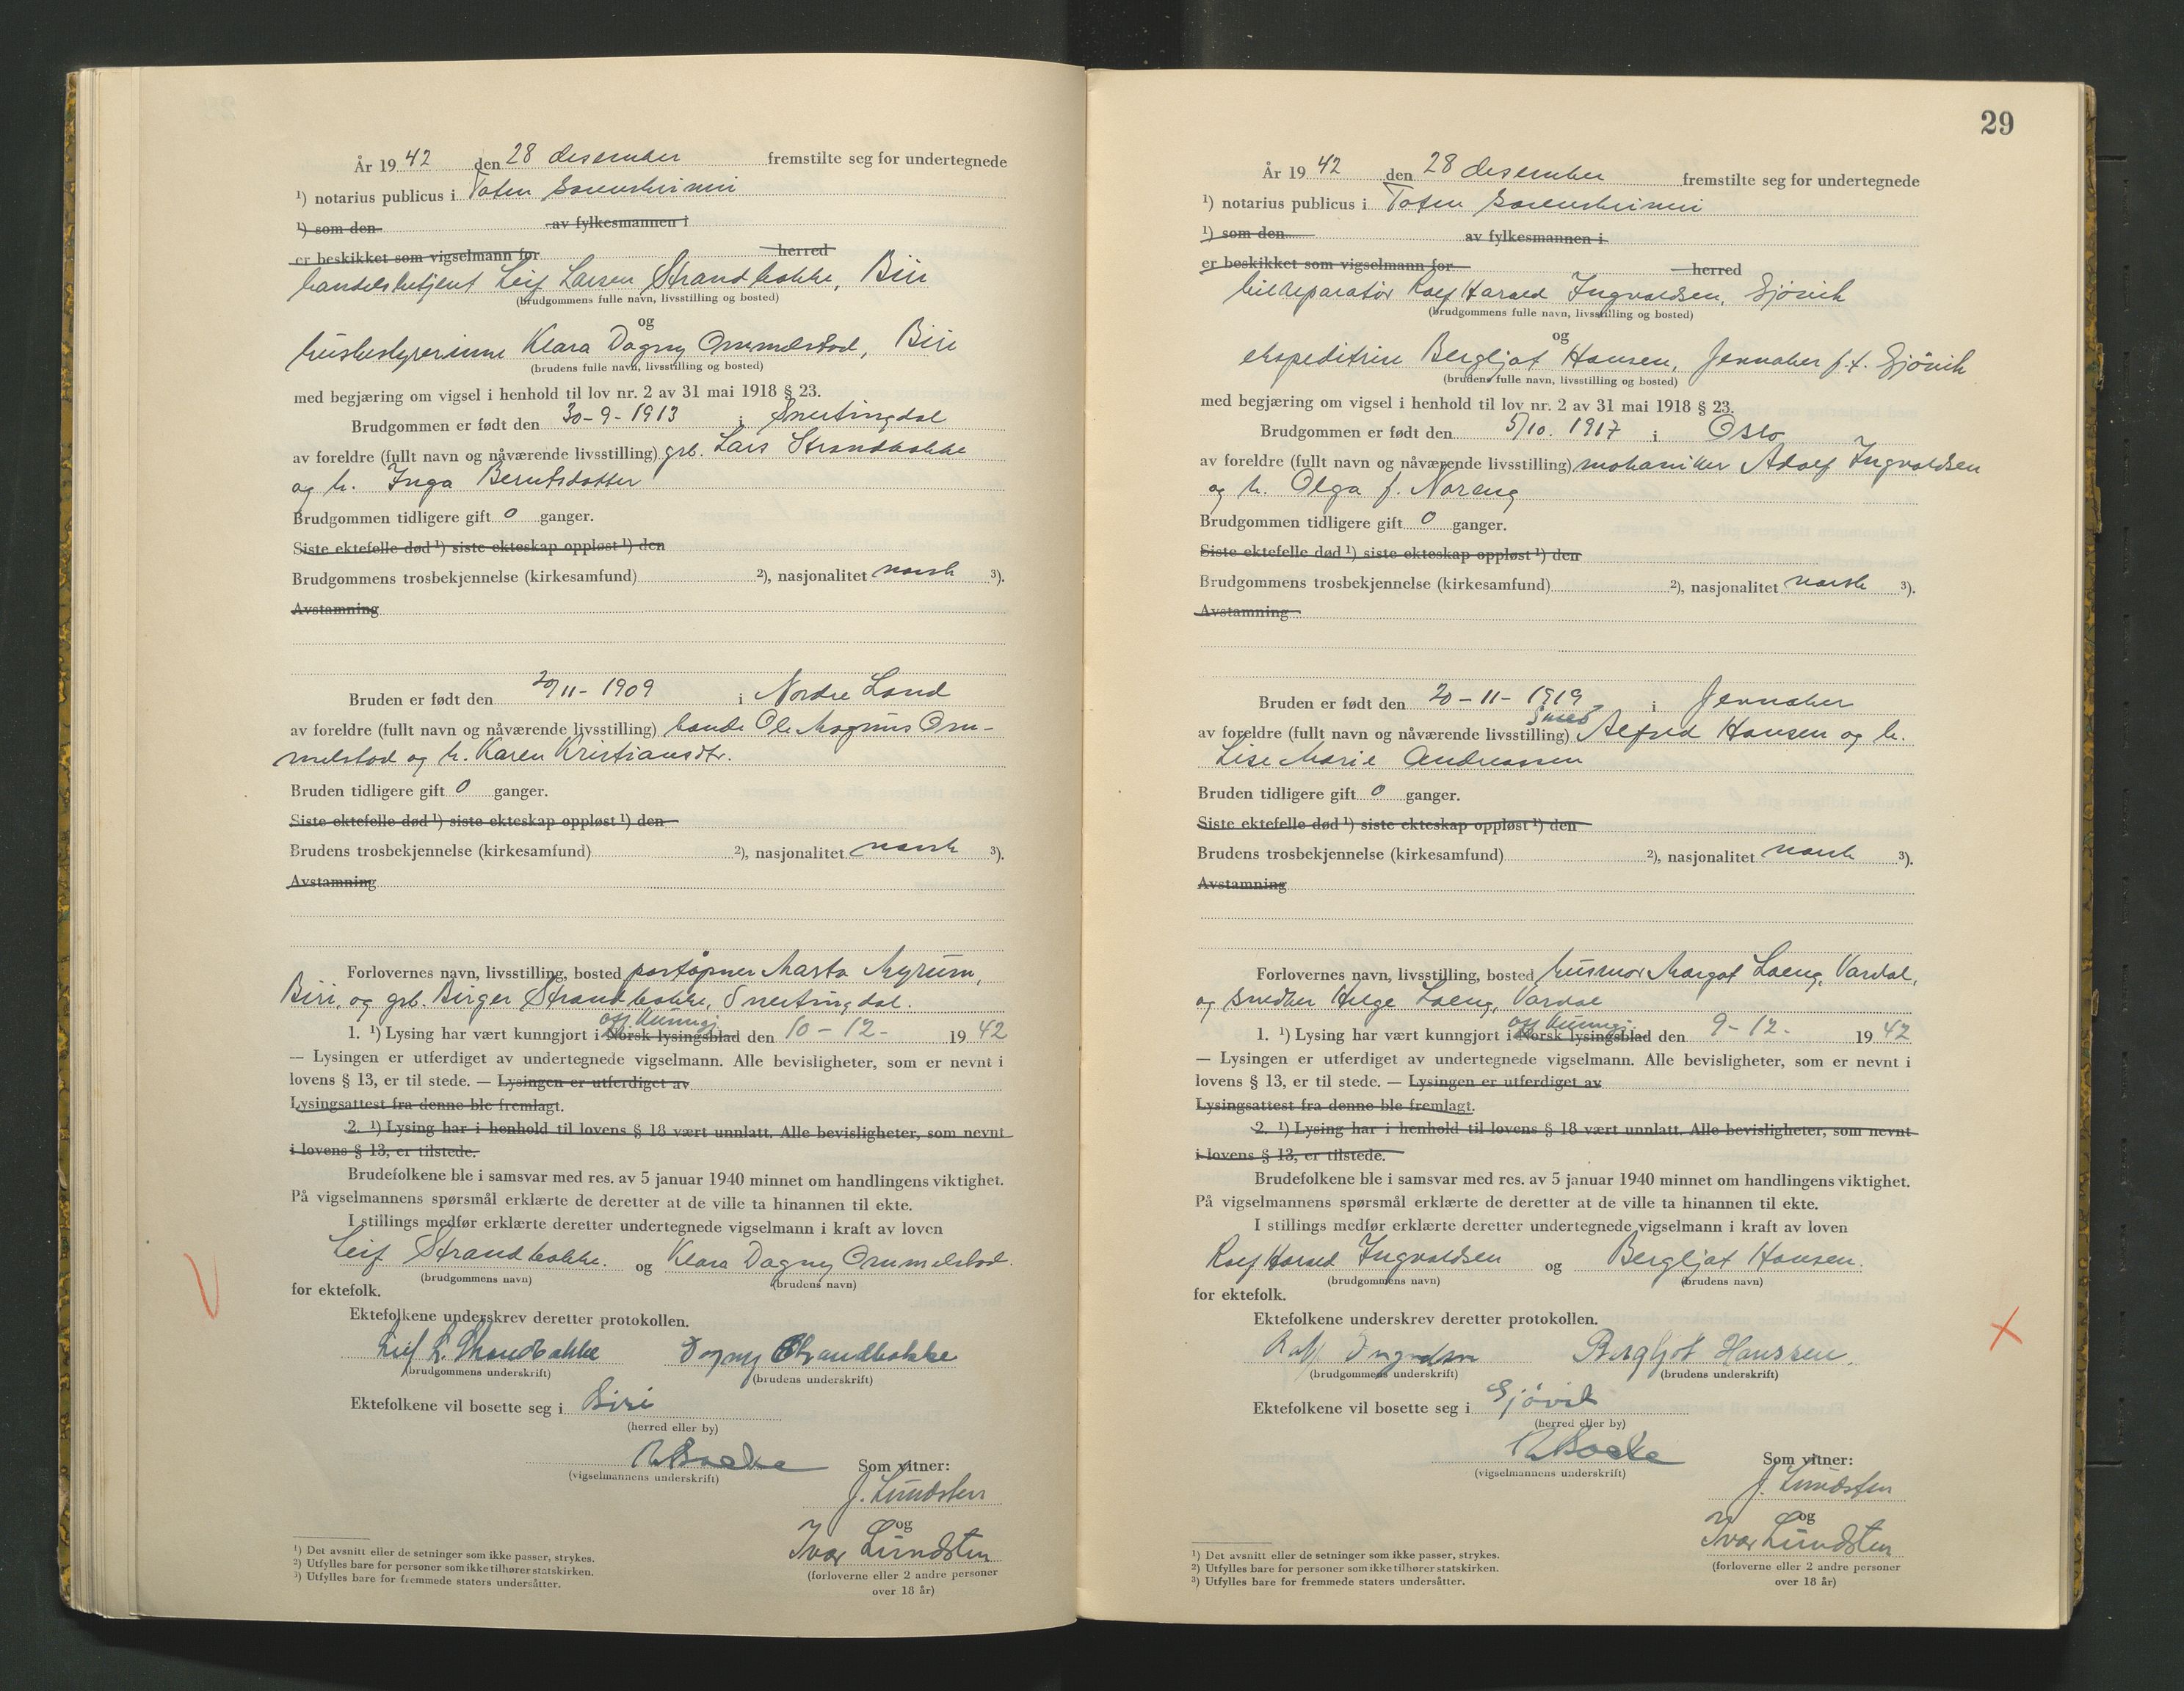 År 19 42 den 28 desember fremstilte seg for undertegnede
¹) notarius publicus i Toten sorenskriveri
¹) som den av fylkesmannen i
er beskikket som vigselmann for herred
handelsbetjent Leif Larsen Strandbakke, Biri
(brudgommens fulle navn, livsstilling og bosted)
og
husbestyrerinne Klara Dagny Ommelstad, Biri
(brudens fulle navn, livsstilling og bosted)
med begjæring om vigsel i henhold til lov nr. 2 av 31 mai 1918 § 23.
Brudgommen er født den 30-9-1913 i Snertingdal
av foreldre (fullt navn og nåværende livsstilling) grb. Lars Strandbakke
og h. Inga Berntsdatter
Brudgommen tidligere gift 0 ganger.
Siste ektefelle død ¹) siste ekteskap oppløst ¹) den
Brudgommens trosbekjennelse (kirkesamfund) ²), nasjonalitet norsk ³).
Avstamning
Bruden er født den 20/11-1909 i Nordre Land
av foreldre (fullt navn og nåværende livsstilling) bonde Ole Magnus Om-
melstad og h. Karen Kristiansdtr.
Bruden tidligere gift 0 ganger.
Siste ektefelle død ¹) siste ekteskap oppløst ¹) den
Brudens trosbekjennelse (kirkesamfund) ²), nasjonalitet norsk ³).
Avstamning
Forlovernes navn, livsstilling, bosted poståpner Marta Myrum,
Biri, og grb. Birger Strandbakke, Snertingdal.
off. kunngj.
1. ¹) Lysing har vært kunngjort i Norsk lysingsblad den 10-12- 19 42
— Lysingen er utferdiget av undertegnede vigselmann. Alle bevisligheter, som er nevnt i
lovens § 13, er til stede. — Lysingen er utferdiget av
Lysingsattest fra denne ble fremlagt.
2. ¹) Lysing har i henhold til lovens § 18 vært unnlatt. Alle bevisligheter, som nevnt
i lovens § 13, er tilstede.
Brudefolkene ble i samsvar med res. av 5 januar 1940 minnet om handlingens viktighet.
På vigselmannens spørsmål erklærte de deretter at de ville ta hinannen til ekte.
I stillings medfør erklærte deretter undertegnede vigselmann i kraft av loven
Leif Strandbakke. og Klara Dagny Ommelstad.
(brudgommens navn) (brudens navn)
for ektefolk.
Ektefolkene underskrev deretter protokollen.
Leif L. Strandbakke Dagny Strandbakke
(brudgommens underskrift) (brudens underskrift)
Ektefolkene vil bosette seg i Biri
(herred eller by)
(vigselmannens underskrift) Som vitner:
J. Lundsten
og
Ivar Lundsten
(forloverne eller 2 andre personer
over 18 år)
¹) Det avsnitt eller de setninger som ikke passer, strykes.
²) Utfylles bare for personer som ikke tilhører statskirken.
³) Utfylles bare for fremmede staters undersåtter.
29
År 19 42 den 28 desember fremstilte seg for undertegnede
¹) notarius publicus i Toten sorenskriveri
¹) som den av fylkesmannen i
er beskikket som vigselmann for herred
bilreparatør Rolf Harald Ingvaldsen, Gjövik
(brudgommens fulle navn, livsstilling og bosted)
og
ekspeditrise Bergljot Hansen, Jevnaker f.t. Gjövik
(brudens fulle navn, livsstilling og bosted)
med begjæring om vigsel i henhold til lov nr. 2 av 31 mai 1918 § 23.
Brudgommen er født den 5/10. 1917 i Oslo
av foreldre (fullt navn og nåværende livsstilling) mekaniker Adolf Ingvaldsen
og h. Olga f. Noreng
Brudgommen tidligere gift 0 ganger.
Siste ektefelle død ¹) siste ekteskap oppløst ¹) den
Brudgommens trosbekjennelse (kirkesamfund) ²), nasjonalitet norsk ³).
Avstamning
Bruden er født den 20-11-1919 i Jevnaker
smed
av foreldre (fullt navn og nåværende livsstilling) Alfred Hansen og h.
Lise Marie Andreassen
Bruden tidligere gift 0 ganger.
Siste ektefelle død ¹) siste ekteskap oppløst ¹) den
Brudens trosbekjennelse (kirkesamfund) ²), nasjonalitet norsk ³).
Avstamning
Forlovernes navn, livsstilling, bosted husmor Margot Loeng, Vardal,
og snedker Helge Loeng, Vardal
off. kunngj.
1. ¹) Lysing har vært kunngjort i Norsk lysingsblad den 9-12- 19 42
— Lysingen er utferdiget av undertegnede vigselmann. Alle bevisligheter, som er nevnt i
lovens § 13, er til stede. — Lysingen er utferdiget av
Lysingsattest fra denne ble fremlagt.
2. ¹) Lysing har i henhold til lovens § 18 vært unnlatt. Alle bevisligheter, som nevnt
i lovens § 13, er tilstede.
Brudefolkene ble i samsvar med res. av 5 januar 1940 minnet om handlingens viktighet.
På vigselmannens spørsmål erklærte de deretter at de ville ta hinannen til ekte.
I stillings medfør erklærte deretter undertegnede vigselmann i kraft av loven
Rolf Harald Ingvaldsen og Bergljot Hansen.
(brudgommens navn) (brudens navn)
for ektefolk.
Ektefolkene underskrev deretter protokollen.
Bergljot Hanssen.
(brudgommens underskrift) (brudens underskrift)
Ektefolkene vil bosette seg i Gjövik
(herred eller by)
(vigselmannens underskrift) Som vitner:
J. Lundsten
og
Ivar Lundsten
(forloverne eller 2 andre personer
over 18 år)
¹) Det avsnitt eller de setninger som ikke passer, strykes.
²) Utfylles bare for personer som ikke tilhører statskirken.
³) Utfylles bare for fremmede staters undersåtter.